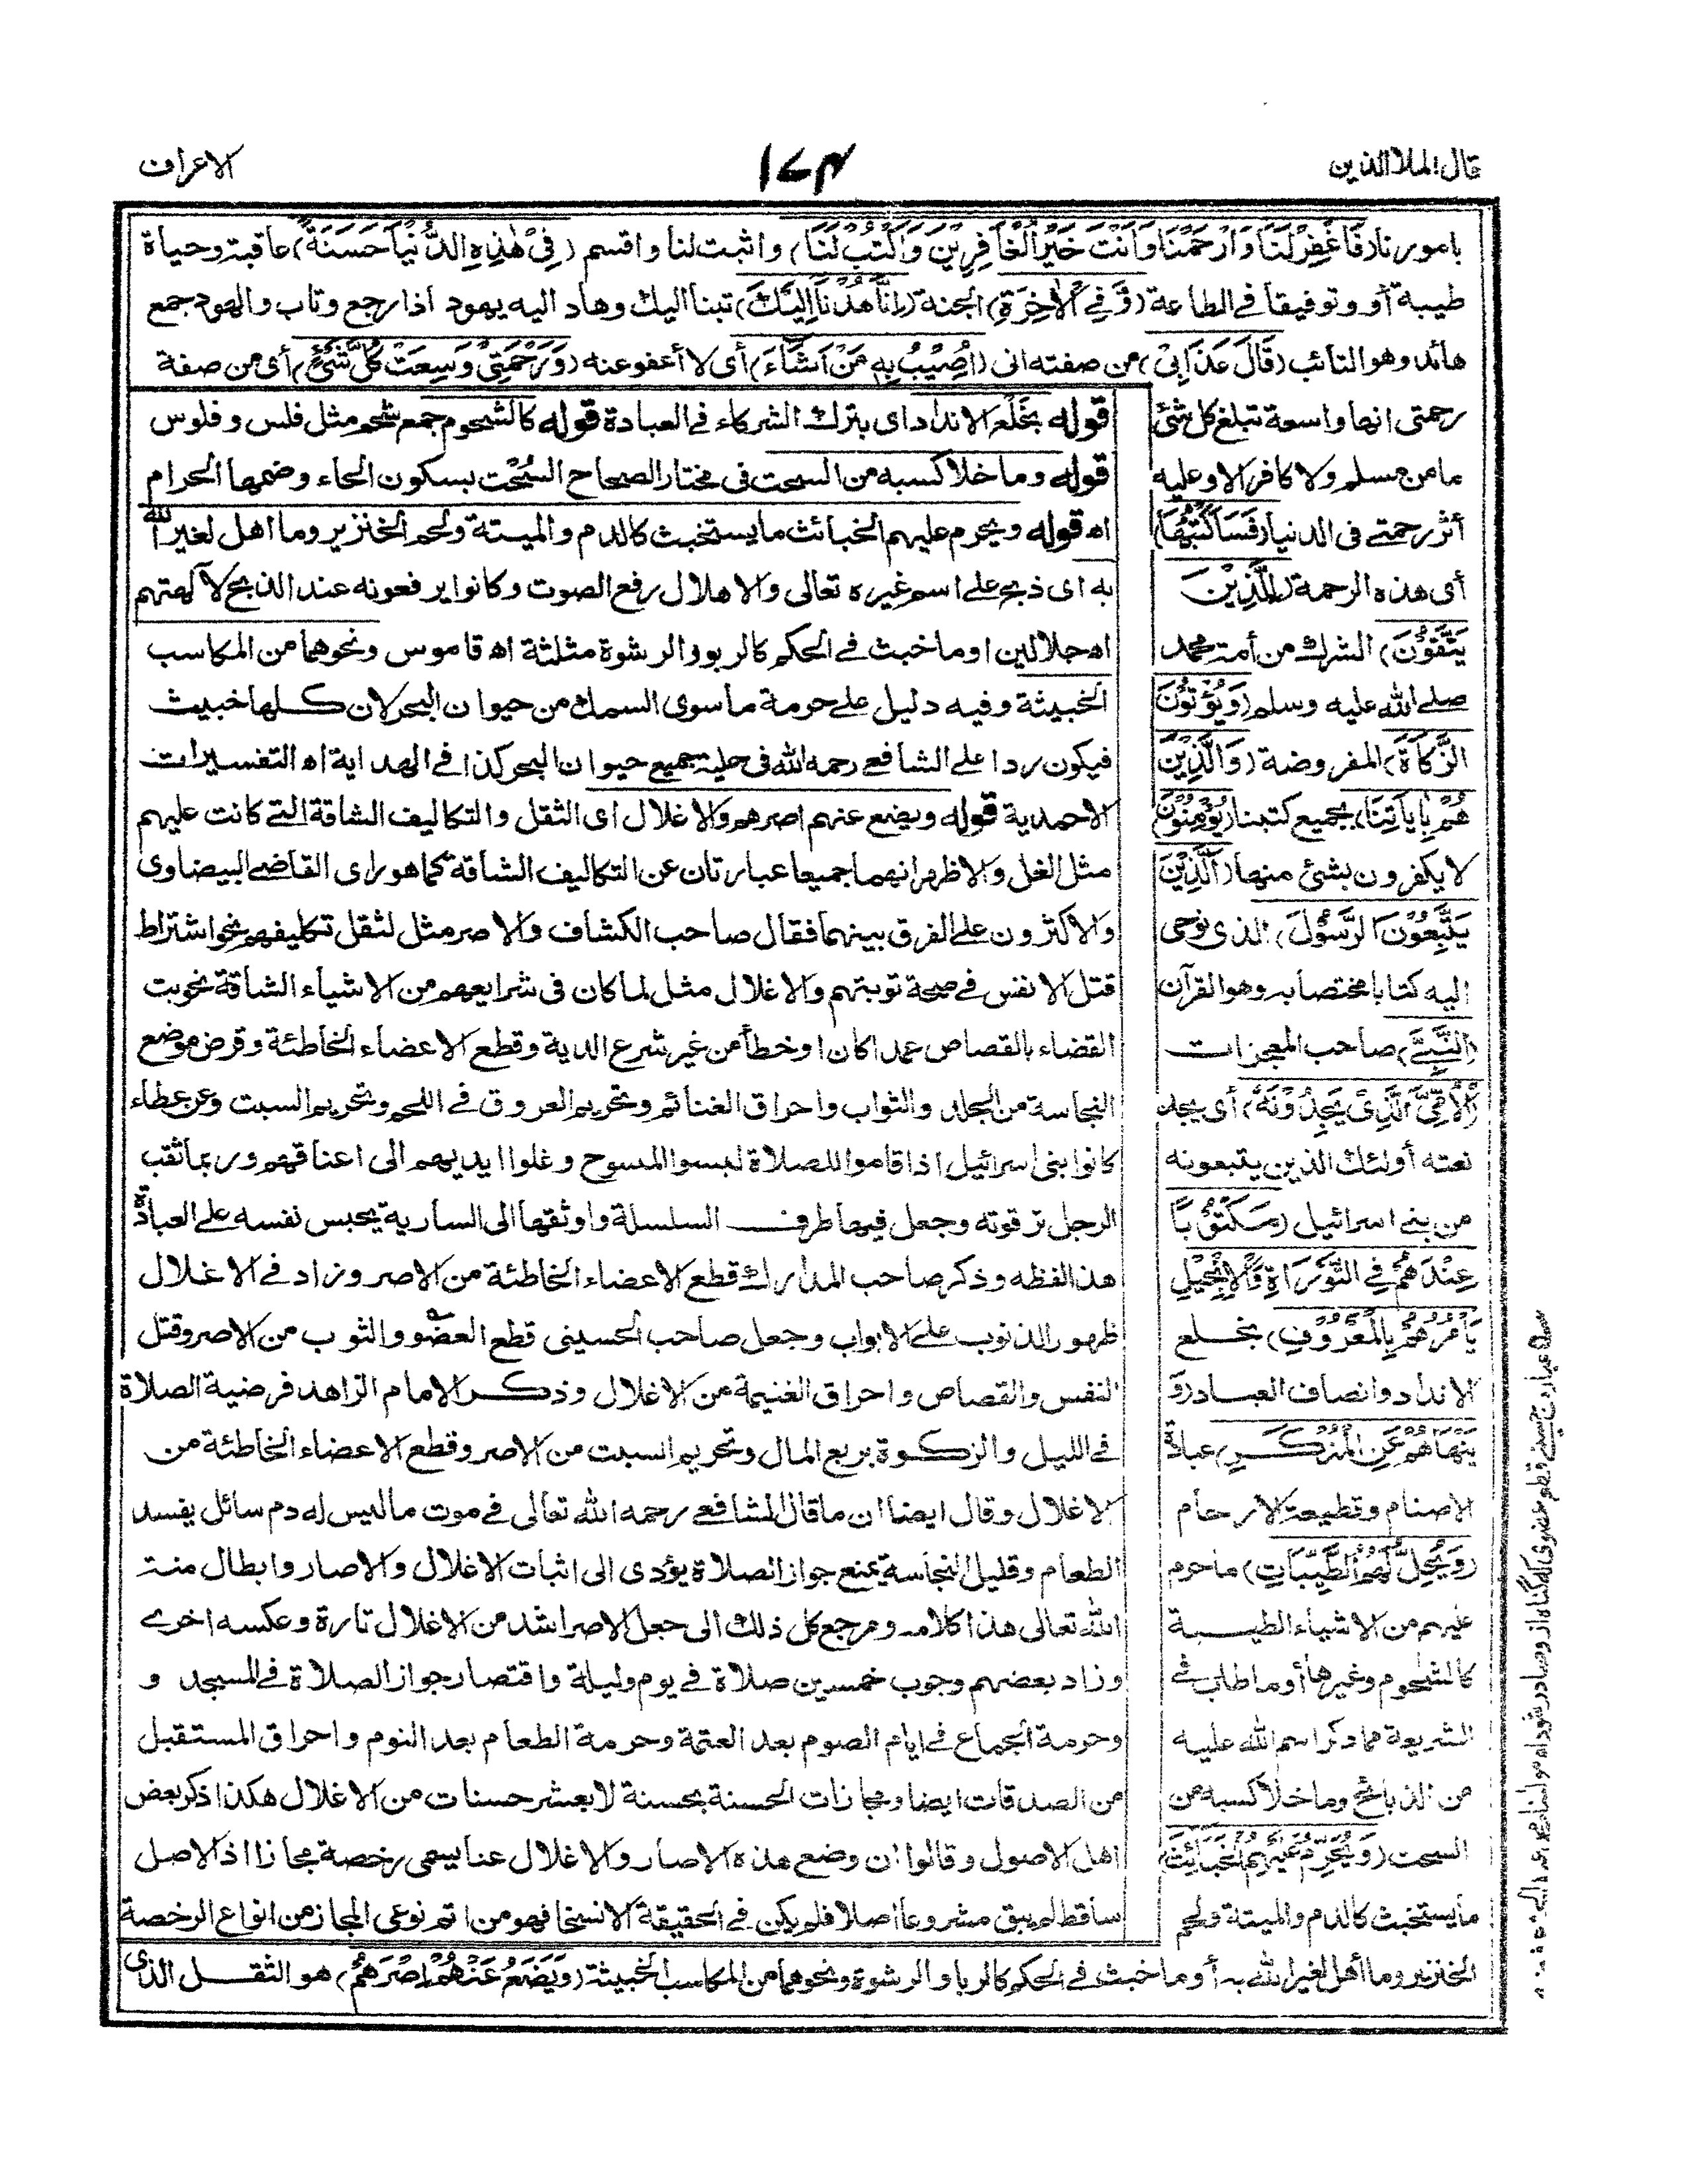 قال الملا الذين
١٧٣
الاعراف
بامورنا (فَاغْفِرْ لَنَا وَارْحَمْنَا وَاَنْتَ خَيْرُ الْغَافِرِيْنَ وَاكْتُبْ لَنَا) واثبت لنا واقسم (فِيْ هٰذِهِ الدُّنْيَا حَسَنَةً) عاقبة وحياة
طيبة أو وتوفيقا في الطاعة (وَّفِي الْاٰخِرَةِ) الجنة (اِنَّا هُدْنَا اِلَيْكَ) تبنا اليك وهاد اليه يهود اذا رجع وتاب والهود جمع
هائد وهو التائب (قَالَ عَذَابِيْ) من صفته اني (اُصِيْبُ بِهٖ مَنْ اَشَاءُ) أى لا أعفو عنه (وَرَحْمَتِيْ وَسِعَتْ كُلَّ شَيْءٍ) أى من صفة
رحمتى انها واسعة تبلغ كل شئ
ما من مسلم ولا كافر الا وعليه
أثر رحمتي فى الدنيا (فَسَاَكْتُبُهَا)
أى هذه الرحمة (لِلَّذِيْنَ
يَتَّقُوْنَ) الشرك من أمة محمد
صلى الله عليه وسلم (وَيُؤْتُوْنَ
الزَّكَاةَ) المفروضة (وَالَّذِيْنَ
هُمْ بِاٰيَاتِنَا) بجميع كتبنا (يُؤْمِنُوْنَ)
لا يكفرون بشئ منها (اَلَّذِيْنَ
يَتَّبِعُوْنَ الرَّسُوْلَ) الذى نوحى
اليه كتابا مختصا به وهو القرآن
(النَّبِيَّ) صاحب المعجزات
(الْاُمِّيَّ الَّذِيْ يَجِدُوْنَهٗ) أى يجد
نعته أولئك الذين يتبعونه
من بني اسرائيل (مَكْتُوْبًا
عِنْدَهُمْ فِي التَّوْرَاةِ وَالْاِنْجِيْلِ
يَاْمُرُهُمْ بِالْمَعْرُوْفِ) بخلع
الانداد وانصاف العباد (وَ
يَنْهَاهُمْ عَنِ الْمُنْكَرِ) عبادة
الاصنام وقطيعة الارحام
(وَيُحِلُّ لَهُمُ الطَّيِّبَاتِ) ما حرم
عليهم من الاشياء الطيبة
كالشحوم وغيرها أو ما طاب في
الشريعة مما ذكر اسم الله عليه
من الذبائح وما خلا كسبه من
السحت (وَيُحَرِّمُ عَلَيْهِمُ الْخَبَائِثَ)
ما يستخبث كالدم والميتة ولحم
قوله بخلع الانداد اى بترك الشركاء فى العبادة قوله كالشحوم جمع شحم مثل فلس وفلوس
قوله وما خلا كسبه من السحت فى مختار الصحاح السُحْت بسكون الحاء وضمها الحرام
اه قوله ويحرم عليهم الخبائث ما يستخبث كالدم والميتة ولحم الخنزير وما اهل لغير الله
به اى ذبح على اسم غيره تعالى والاهلال رفع الصوت وكانوا يرفعونه عند الذبح لآلهتهم
اه جلالين او ما خبث في الحكم كالربو والرشوة مثلثة اه قاموس ونحوهما من المكاسب
الخبيثة وفيه دليل على حرمة ما سوى السمك من حيوان البحر لان كلها خبيث
فيكون ردا على الشافعي رحمه الله فى حلية جميع حيوان البحر كذا في الهداية اه التفسيرات
الاحمدية قوله ويضع عنهم اصرهم والاغلال اى الثقل والتكاليف الشاقة التي كانت عليهم
مثل الغل والاظهر انهما جميعا عبارتان عن التكاليف الشاقة كما هو راى القاضي البيضاوى
والاكثرون على الفرق بينهما فقال صاحب الكشاف والاصر مثل لثقل تكليفهم نحو اشتراط
قتل الانفس في صحة توبتهم والاغلال مثل لما كان فى شرايعهم من الاشياء الشاقة نحو بت
القضاء بالقصاص عمدا كان او خطأ من غير شرع الدية وقطع الاعضاء الخاطئة وقرض موضع
النجاسة من الجلد والثواب واحراق الغنائم وتحريم العروق في اللحم وتحريم السبت وعن عطاء
كانوا بنى اسرائيل اذا قاموا للصلاة لبسوا المسوح وغلوا ايديهم الى اعناقهم وربما ثقب
الرجل ترقوته وجعل فيها طرف السلسلة واوثقها الى السارية يحبس نفسه على العبادة
هذا لفظه وذكر صاحب المدارك قطع الاعضاء الخاطئة من الاصر وزاد في الاغلال
ظهور الذنوب على الابواب وجعل صاحب الحسينى قطع العضو والثوب من الاصر وقتل
النفس والقصاص واحراق الغنيمة من الاغلال وذكر الامام الزاهد فرضية الصلاة
في الليل والزكوة بربع المال وتحريم السبت من الاصر وقطع الاعضاء الخاطئة من
الاغلال وقال ايضا ان ما قال الشافعي رحمه الله تعالى في موت ما ليس له دم سائل يفسد
الطعام وقليل النجاسة يمنع جواز الصلاة يؤدى الى اثبات الاغلال والاصار وابطال منة
الله تعالى هذا كلامه ومرجع كل ذلك الى جعل الاصر اشد من الاغلال تارة وعكسه اخرى
وزاد بعضهم وجوب خمسين صلاة في يوم وليلة واقتصار جواز الصلاة في المسجد و
وحرمة الجماع في ايام الصوم بعد العتمة وحرمة الطعام بعد النوم واحراق المستقبل
من الصدقات ايضا ومجازات الحسنة بحسنة لا بعشر حسنات من الاغلال هكذا ذكر بعض
اهل الاصول وقالوا ان وضع هذه الاصار والاغلال عنا يسمى رخصة مجازا اذ الاصل
ساقط لم يبق مشروعا اصلا فلم يكن في الحقيقة الا نسخا فهو من اتم نوعى المجاز من انواع الرخصة
الخنزير وما أهل لغير الله به أو ما خبث في الحكم كالربا والرشوة ونحوهما من المكاسب الخبيثة (وَيَضَعُ عَنْهُمْ اِصْرَهُمْ) هو الثقل الذى